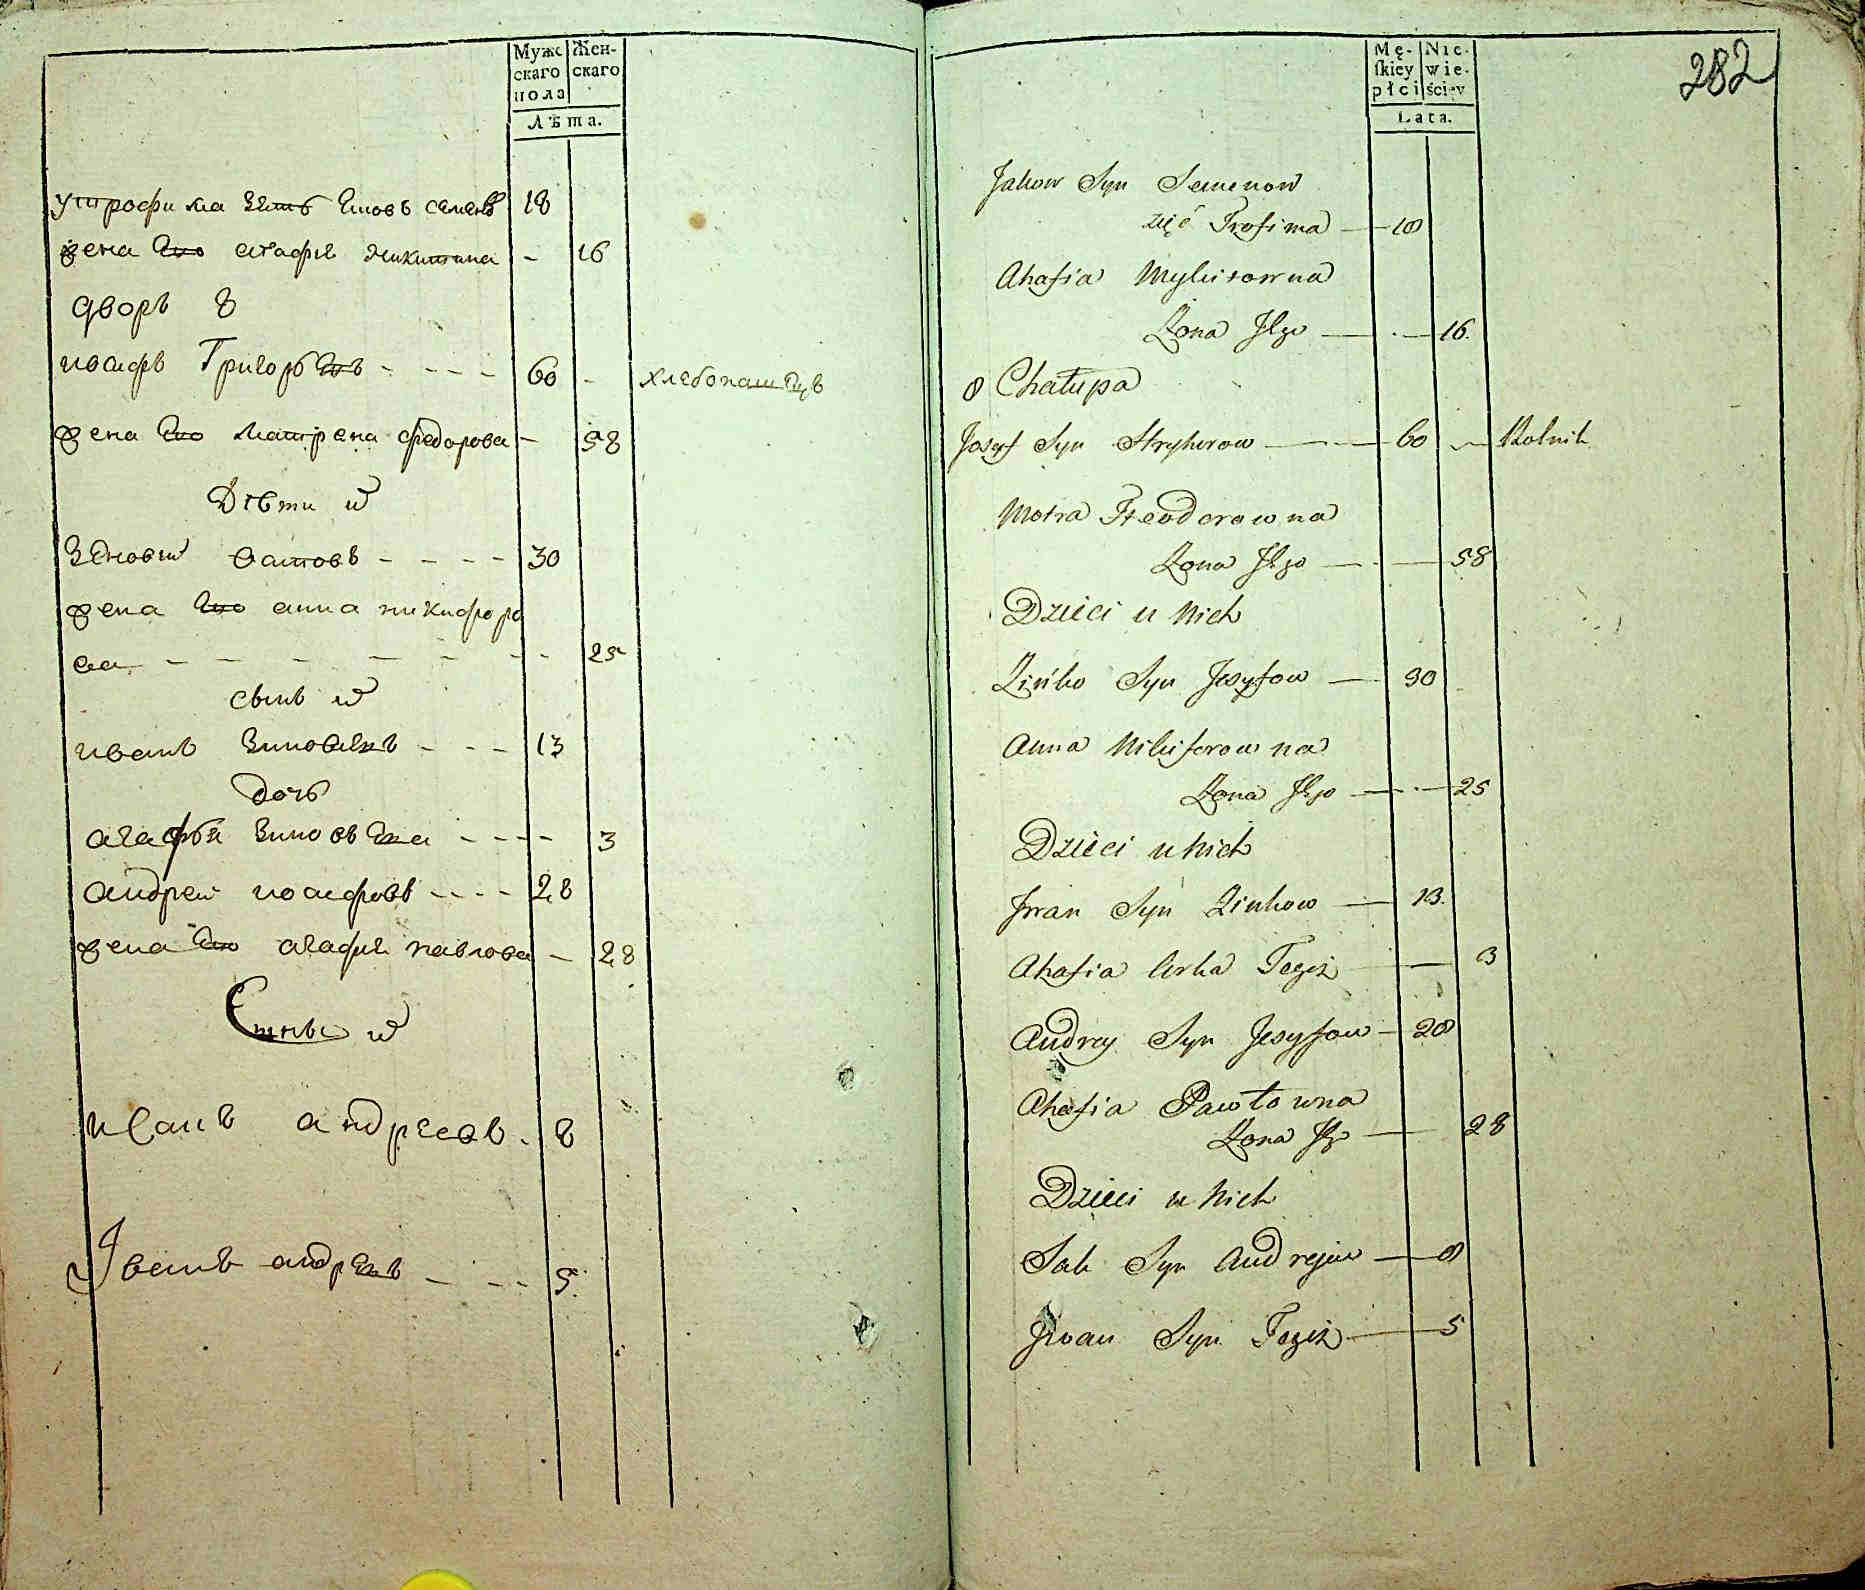 Мужс
скаго
пола
Жен-
скаго
Лѣта.
у трофима зять яковъ семеновъ 18
жена его агафия никитина - 16
дворъ 8
иосифъ Григорьевъ - - - - 60 - хлебопашецъ
жена его матрена федорова - 58
Дѣти их
Зеновий осиповъ - - - - 30
жена его анна никифоро
ва - - - - - - - 25
сынъ их
иванъ зиновеевъ - - - 13
дочь
агафья зиновьева - - - - 3
андрей иосифовъ - - - - 28
жена его агафия павлова - 28
их
иванъ андреевъ - 8
Іванъ андреевъ - - - - 5
Mę-
skiey
płci
Nie-
wie-
ściey
Lata.
282
Jakow Syn Semenow
zięć Trofima — 18
Ahafia Mykitowna
Żona Jego — - — 16
8 Chałupa
Josyf Syn Hryhorow — 60 — Rolnik
Motra Fteodorowna
Żona Jego — - — 58
Dzieci u Nich
Zińko Syn Josyfow — 30
Anna Nikiforowna
Żona Jego — - — 25
Dzieci u Nich
Jwan Syn Zinkow — 13
Ahafia Curka Tegoż — 3
Andrey Syn Josyfow — 28
Ahafia Pawłowna
Żona Jego — 28
Dzieci u Nich
Syn Andrejow — 8
Jwan Syn Tegoż — 5